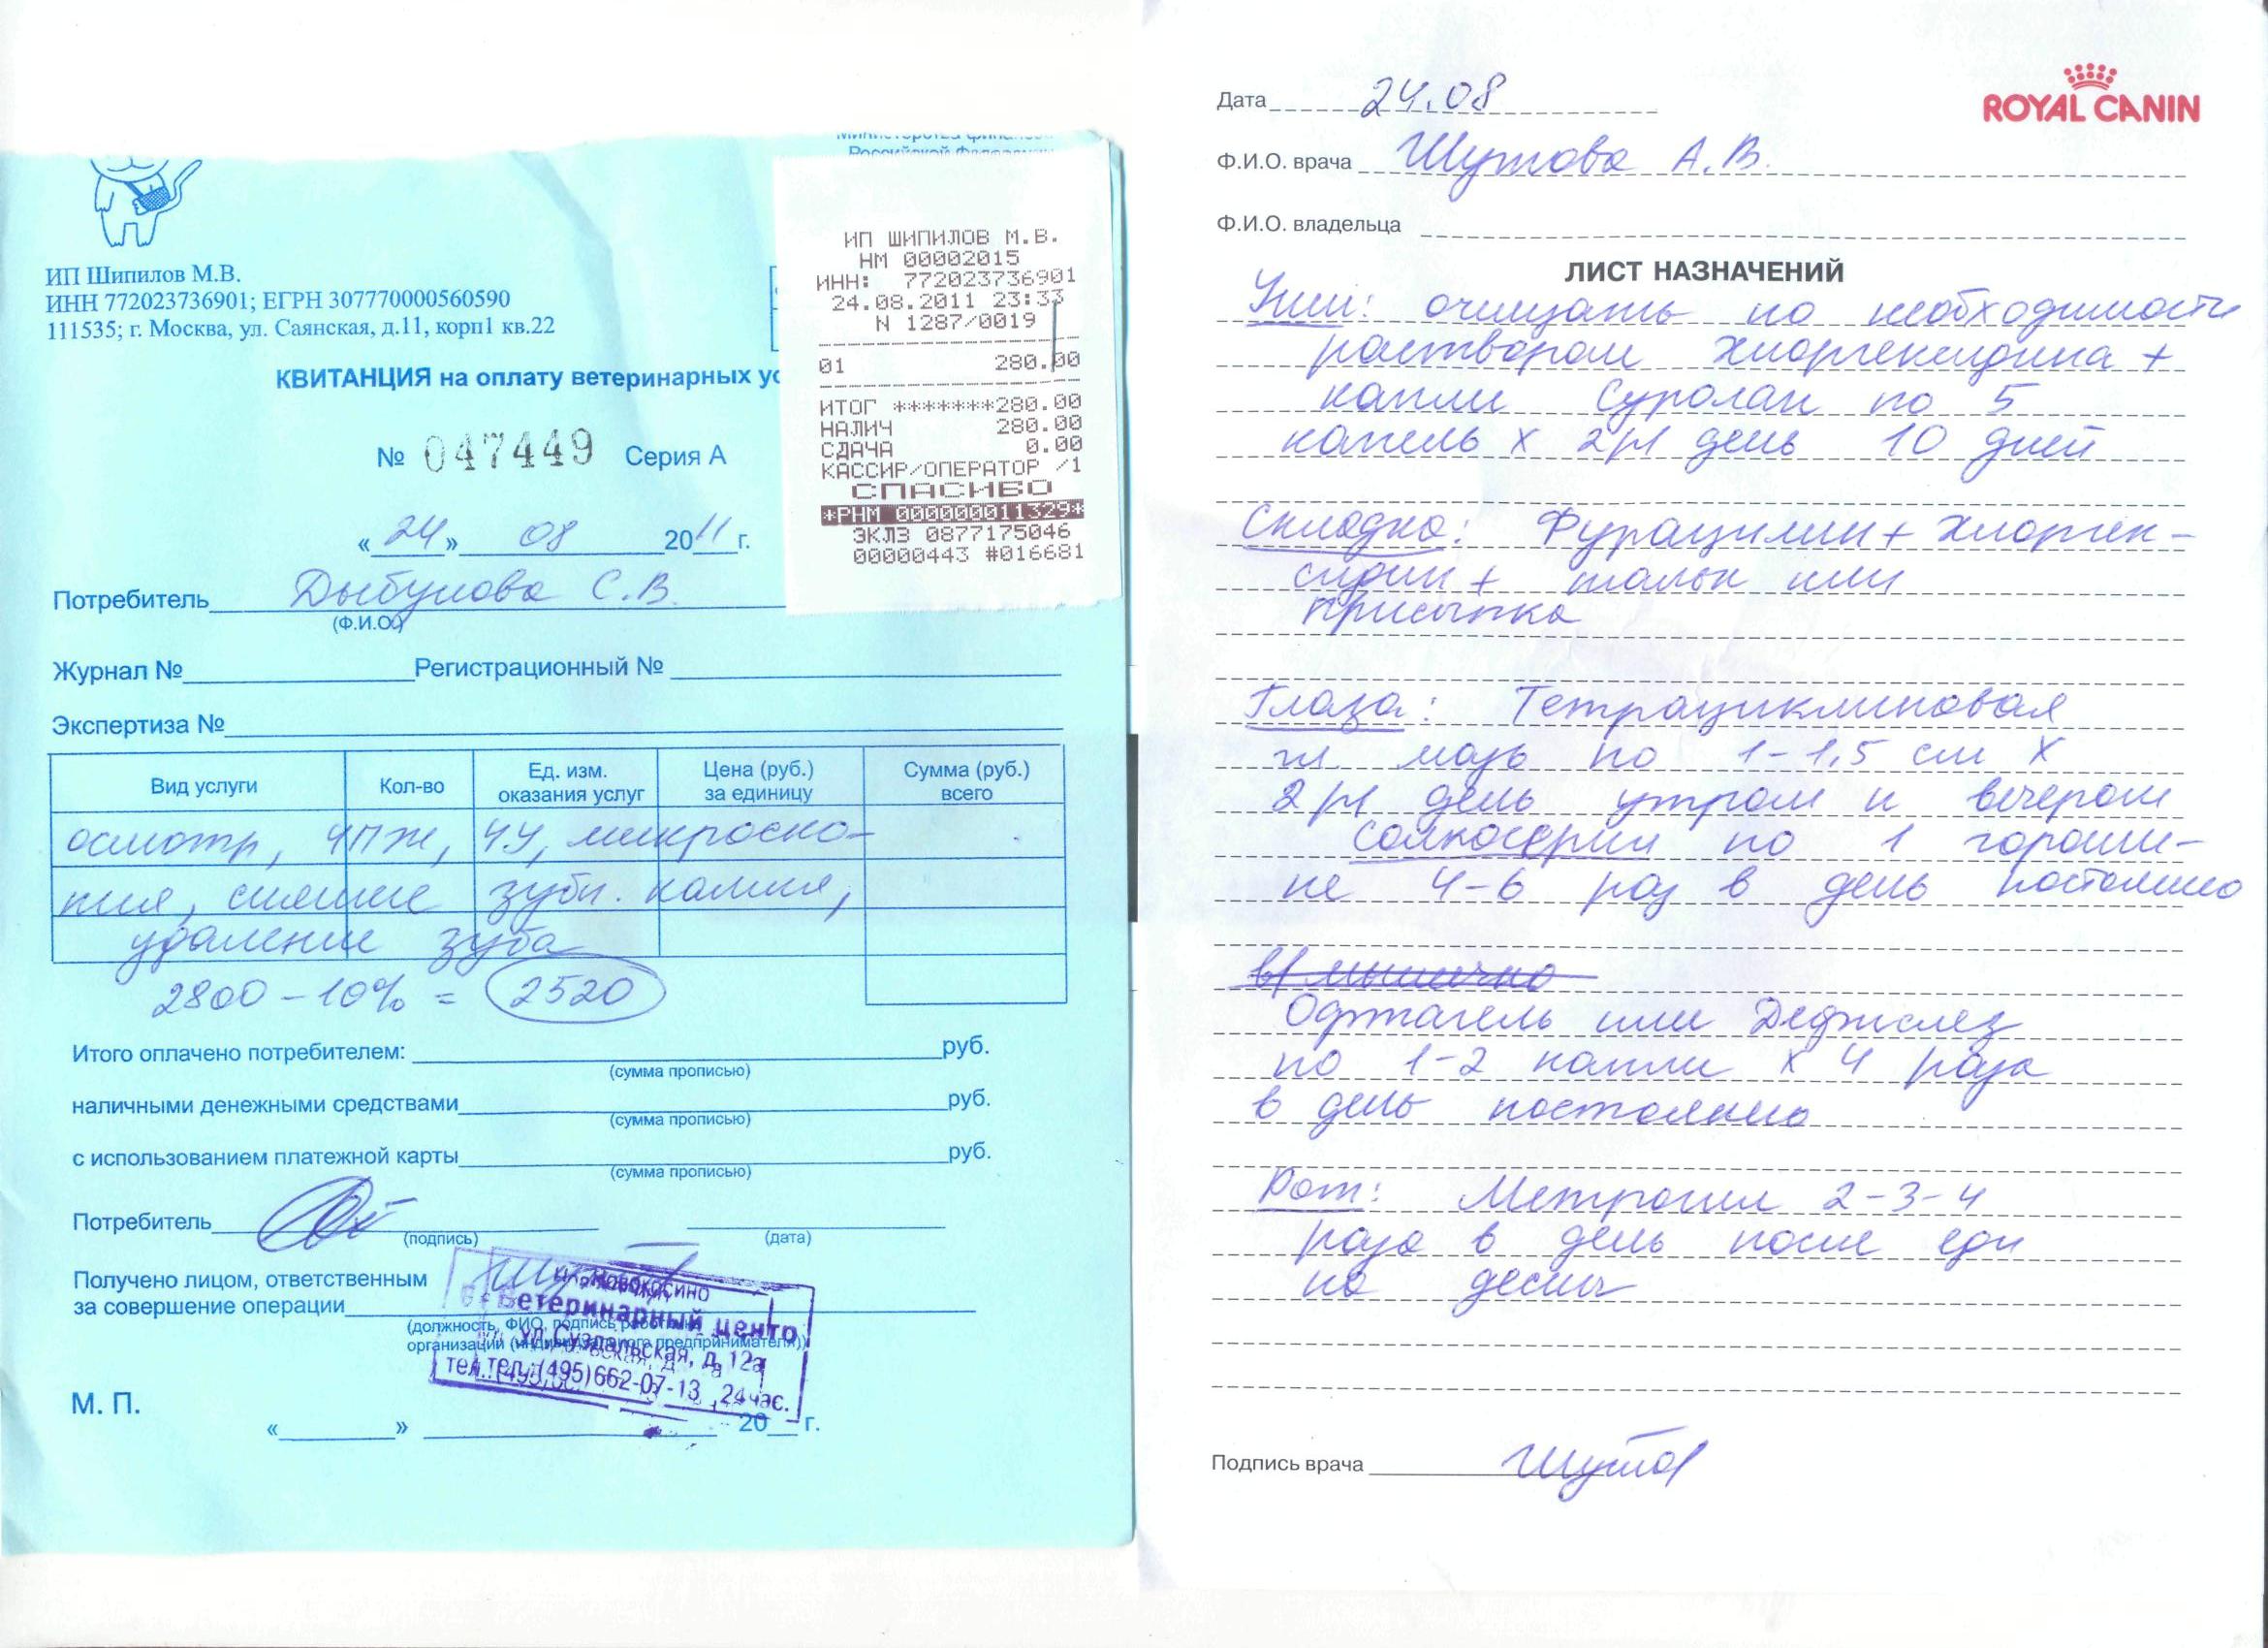 Российской Федерации
ИП Шипилов М.В.
ИНН 772023736901; ЕГРН 307770000560590
111535; г. Москва, ул. Саянская, д.11, корп1 кв.22
КВИТАНЦИЯ на оплату ветеринарных ус
№ 047449 Серия А
«24» 08 2011 г.
Потребитель Дыбунова С.В.
(Ф.И.О.)
Журнал № Регистрационный №
Экспертиза №
Вид услуги Кол-во Ед. изм. оказания услуг Цена (руб.) за единицу Сумма (руб.) всего
осмотр, ЧПЖ, ЧУ, микроско-
пия, снятие зубн. камня,
удаление зуба
2800 - 10% = 2520
Итого оплачено потребителем: руб.
(сумма прописью)
наличными денежными средствами руб.
(сумма прописью)
с использованием платежной карты руб.
(сумма прописью)
Потребитель
(подпись) (дата)
Получено лицом, ответственным
за совершение операции
(должность, ФИО, подпись
организации (индивидуального предпринимателя))
Новокосино
Ветеринарный центр
ул. Суздальская, д. 12а
тел.: (495) 662-07-13, 24 час.
М. П.
« » 20 г.
ИП ШИПИЛОВ М.В.
НМ 00002015
ИНН: 772023736901
24.08.2011 23:33
N 1287/0019
01 280.00
ИТОГ *******280.00
НАЛИЧ 280.00
СДАЧА 0.00
КАССИР/ОПЕРАТОР /1
СПАСИБО
*РНМ 000000011329*
ЭКЛЗ 0877175046
00000443 #016681
ROYAL CANIN
Дата 24.08
Ф.И.О. врача Шутова А.В.
Ф.И.О. владельца
ЛИСТ НАЗНАЧЕНИЙ
Уши: очищать по необходимости
раствором хлоргексидина +
капли Суролан по 5
капель х 2 р/ день 10 дней
Складка: Фурацилин + хлоргек-
сидин + тальк или
присыпка
Глаза: Тетрациклиновая
гл мазь по 1-1,5 см х
2 р/ день утром и вечером
солкосерил по 1 гороши-
не 4-6 раз в день постоянно
в/мышечно
Офтагель или Дефислез
по 1-2 капли х 4 раза
в день постоянно
Рот: Метрогил 2-3-4
раза в день после еды
на десны
Подпись врача